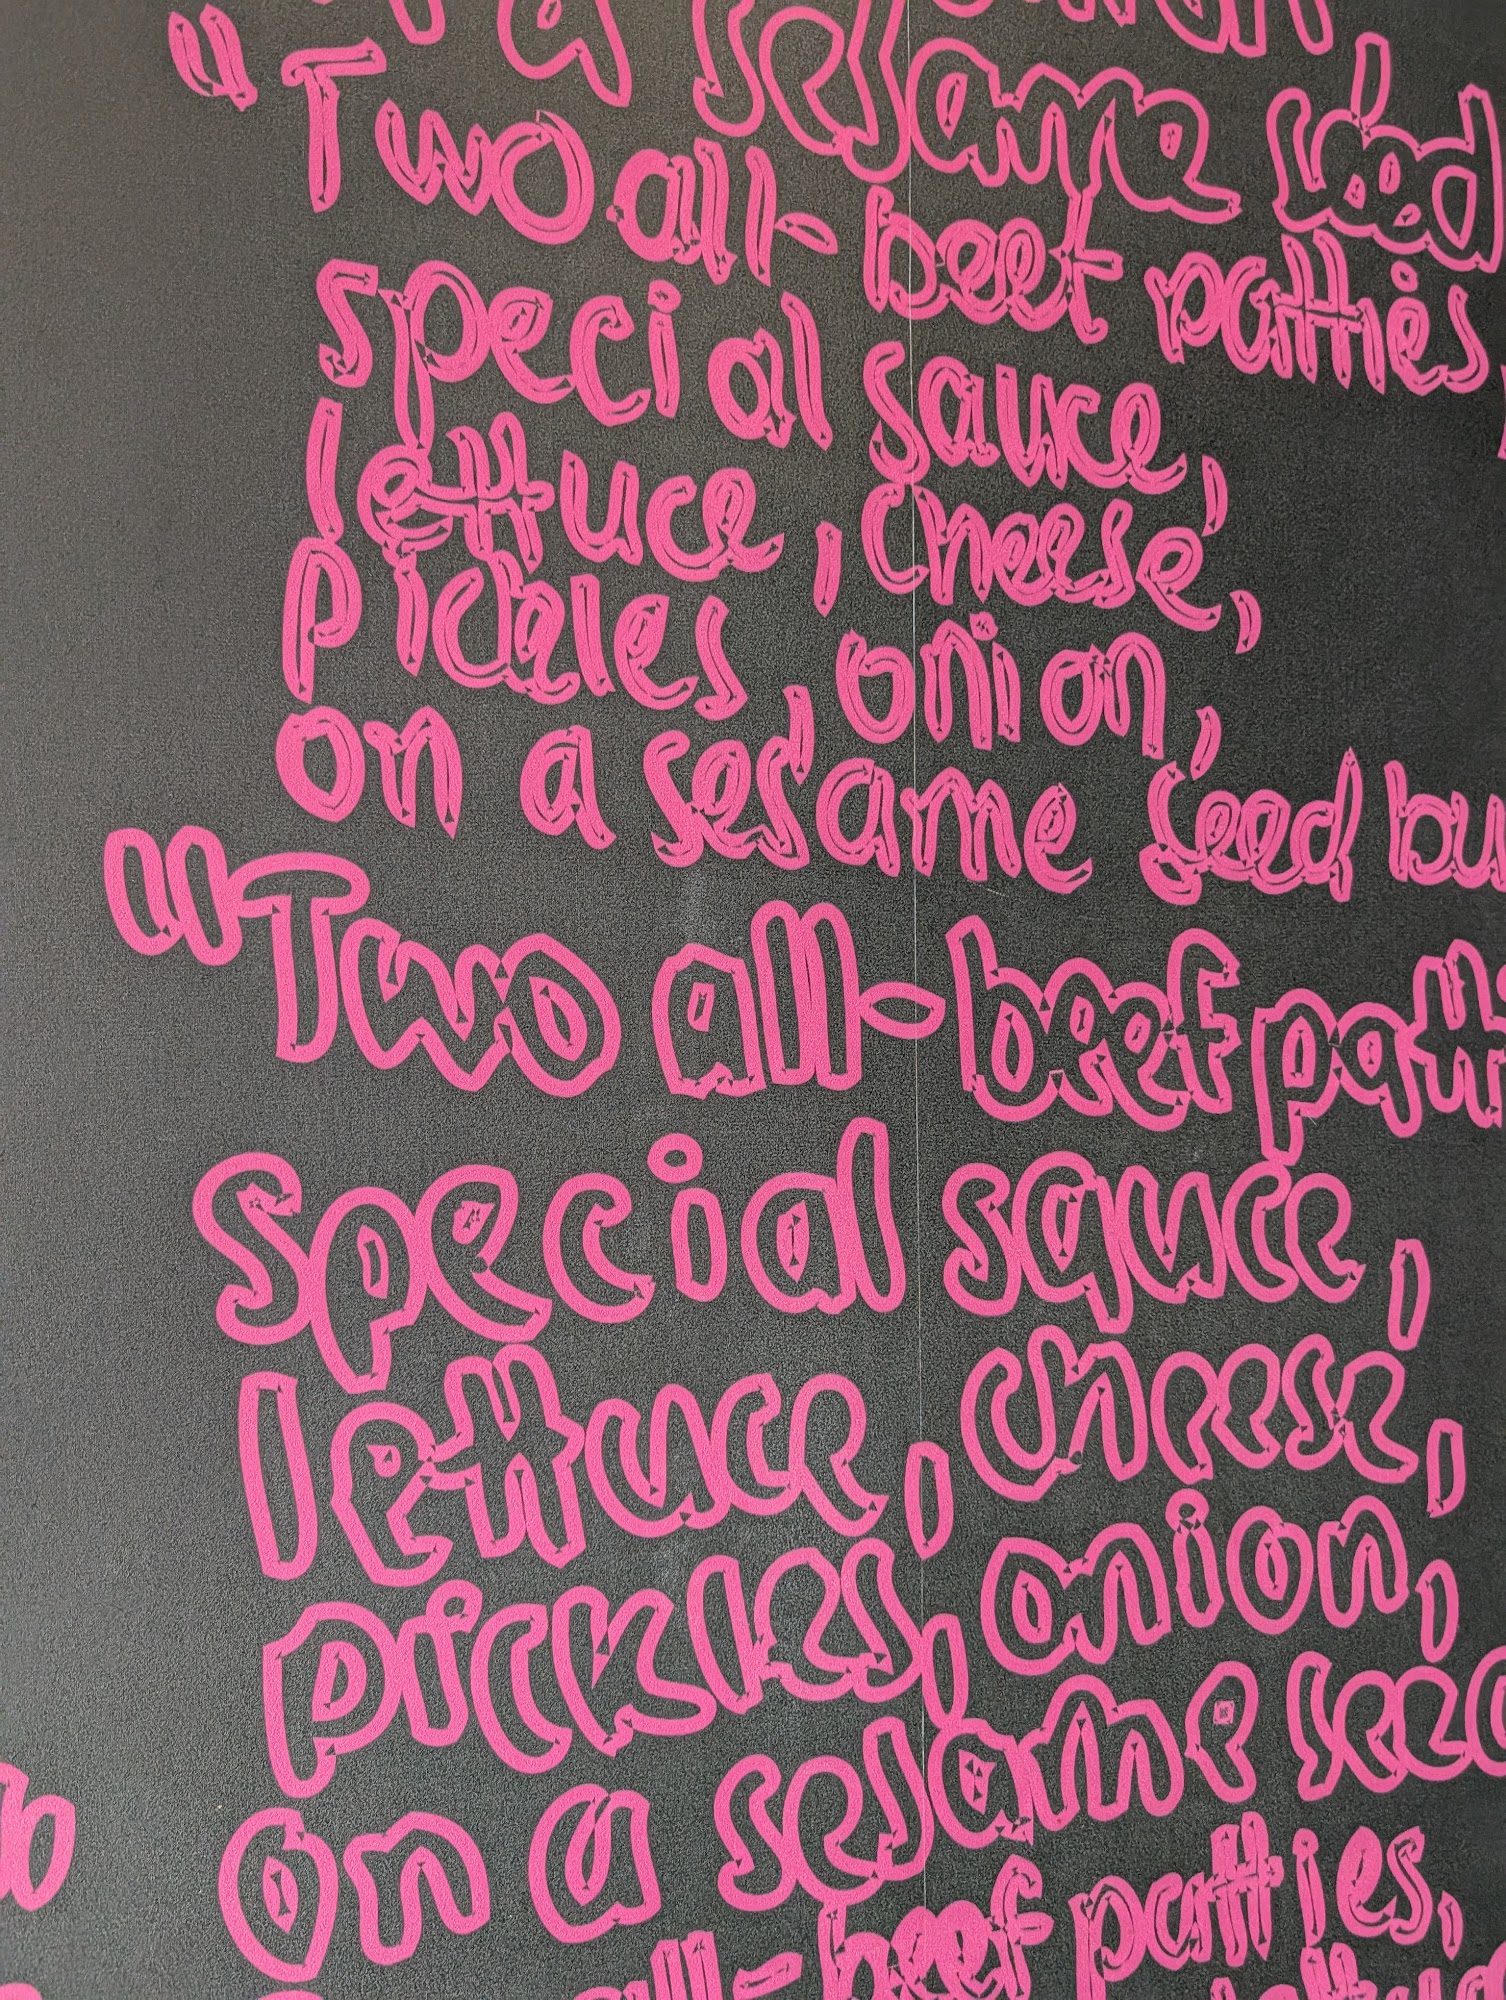 a sesame seed
"Two all-beef patties,
special sauce,
lettuce, cheese,
pickles, onion,
on a sesame seed bu
"Two all-beef patti
special sauce,
lettuce, cheese,
pickles, onion,
on a sesame seed
all-beef patties,